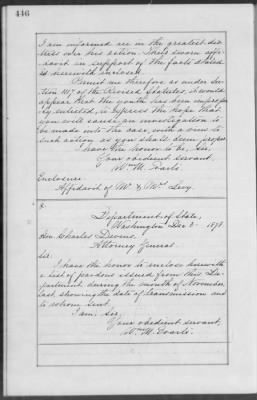 446
I am informed are in the greatest dis-
tress into this action. Their sworn affi-
davit in support of the facts stated
is herewith inclosed.
Permit me therefore, as under Sec-
tion 1117 of the Revised Statutes it would
appear that the youth has been improper-
ly enlisted, to express the hope that
you will cause an investigation to
be made into the case, with a view to
such action as you shall deem proper.
I have the honor to be, Sir,
Your obedient servant,
Wm. M. Evarts.
Enclosure:
Affidavit of Mr. & Mrs. Levy.
Department of State,
Washington Dec 3. 1878.
Hon. Charles Devens,
Attorney General.
Sir:
I have the honor to enclose herewith
a list of pardons issued from this De-
partment during the month of November
last, showing the date of transmission and
to whom sent.
I am, Sir,
Your obedient servant,
Wm. M. Evarts.